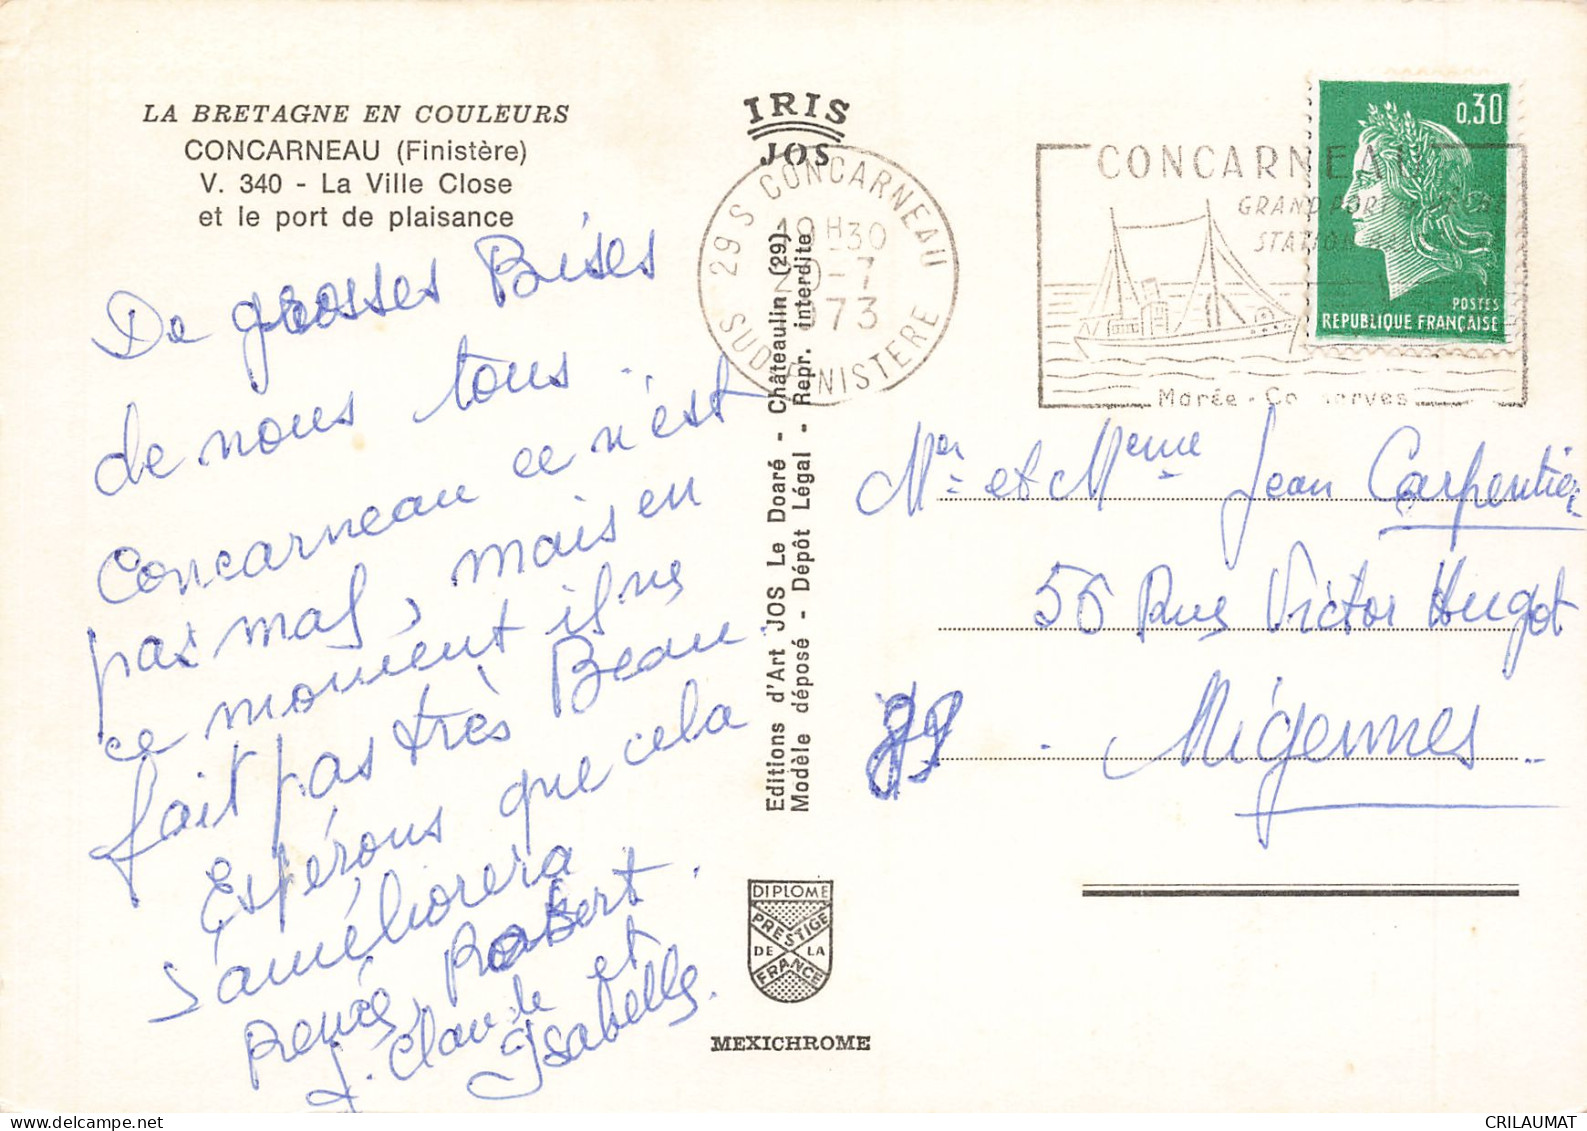 LA BRETAGNE EN COULEURS
CONCARNEAU (Finistère)
V. 340 - La Ville Close
et le port de plaisance
De grosses Bises
de nous tous ..
Concarneau ce n'est
pas mal, mais en
ce moment il ne
fait pas très Beau.
Espérons que cela
s'améliorera.
Renée, Robert
J. Claude et
Isabelle.
IRIS
JOS
Editions d'Art JOS Le Doaré - Châteaulin (29)
Modèle déposé - Dépôt Légal - Repr. interdite
DIPLOME
PRESTIGE
DE LA
FRANCE
MEXICHROME
29 S CONCARNEAU
19H30
-7
1973
SUD FINISTERE
CONCARNEAU
GRAND PORT
STATION
Marée - Conserves
0,30
POSTES
REPUBLIQUE FRANÇAISE
Mr et Mme Jean Carpentier
56 Rue Victor Hugot
89 . Migennes
CRILAUMAT